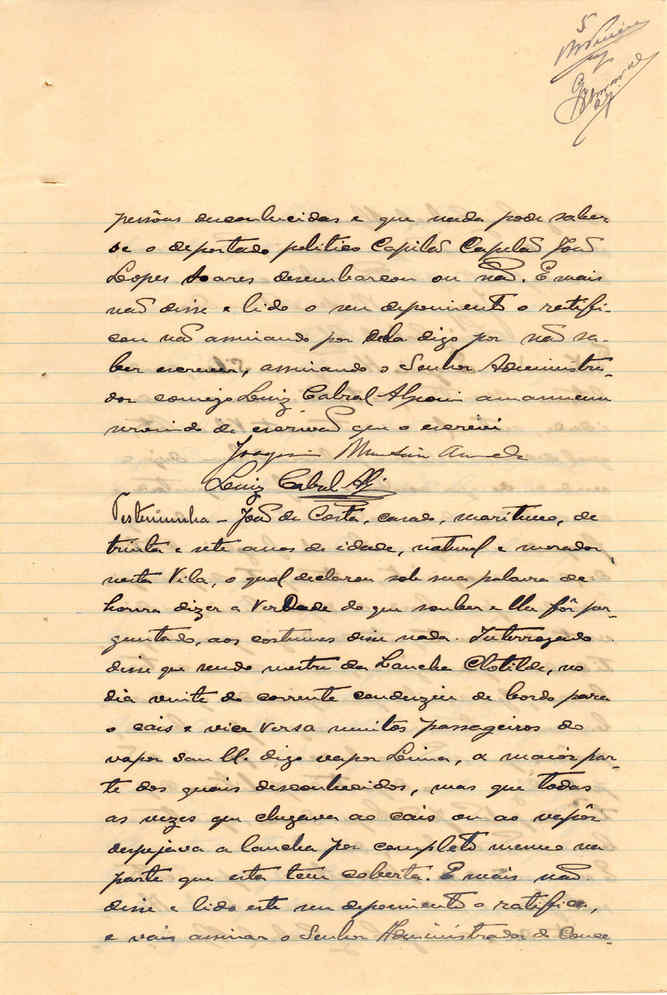 5
pessôas desconhecidas e que nada pode saber
se o deportado politico Capitão Capelão João
Lopes Soares desembarcou ou não. E mais
não disse e lido o seu depoimento o ratifi-
cou não assinando por dela digo por não sa-
ber escrever, assinando o Senhor Administra-
dor comigo Luiz Cabral amanuense
servindo de escrivão que o escrevi
Joaquim
Luiz Cabral
Testemunha - João da Costa, casado, maritimo, de
trinta e sete anos de idade, natural e morador
nesta Vila, o qual declarou sob sua palavra de
honra dizer a Verdade do que souber e lhe fôr per-
guntado, aos costumes disse nada. Interrogado
disse que sendo mestre da Lancha Clotilde, no
dia vinte do corrente conduziu de bordo para
o cais e vice versa muitos passageiros do
vapor San M. digo vapor Lima, a maior par-
te dos quais desconhecidos, mas que todas
as vezes que chegava ao cais ou ao vapôr
despejava a lancha por completo mesmo na
parte que esta tem coberta. E mais não
disse e lido este seu depoimento o ratifica,
e vais assinar o Senhor Administrador do Conce-